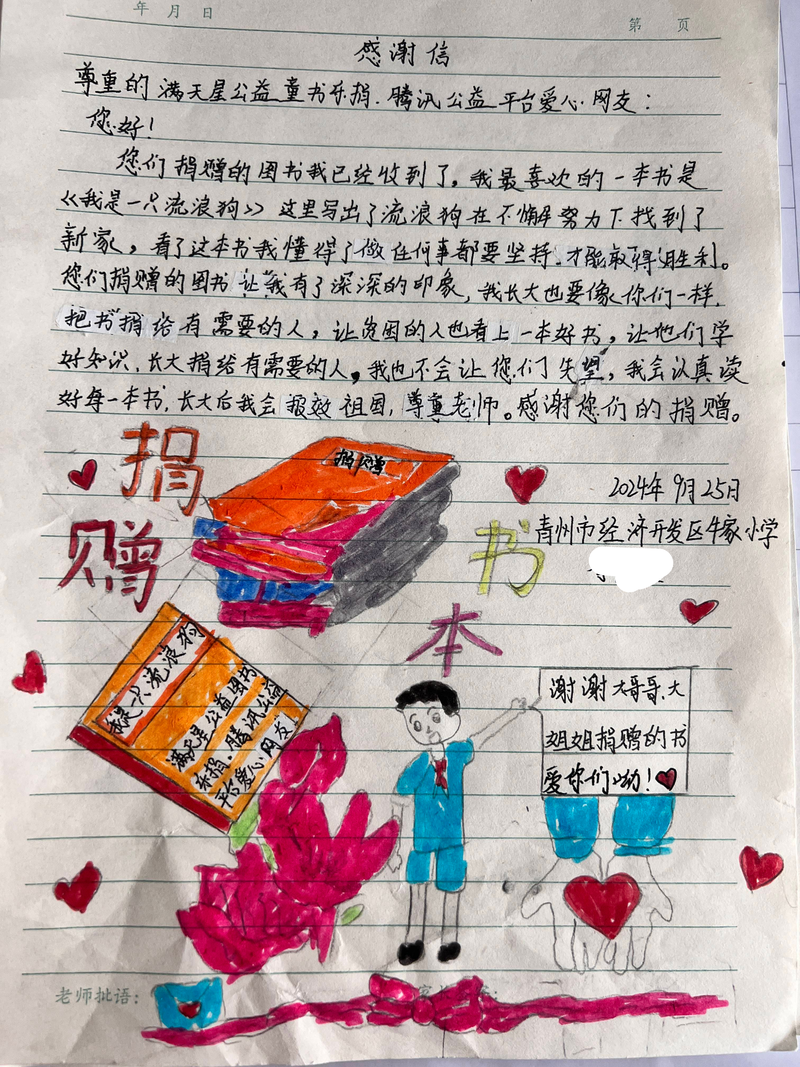 年 月 日
第 页
感谢信
尊重的满天星公益童书乐捐.腾讯公益平台爱心网友：
您好！
您们捐赠的图书我已经收到了，我最喜欢的一本书是
《我是一只流浪狗》这里写出了流浪狗在不懈努力下找到了
新家，看了这本书我懂得了做任何事都要坚持.才能取得胜利。
您们捐赠的图书让我有了深深的印象，我长大也要像你们一样，
把书捐给有需要的人，让贫困的人也看上一本好书，让他们学
好知识.长大捐给有需要的人，我也不会让您们失望，我会认真读
好每一本书.长大后我会报效祖国，尊重老师。感谢您们的捐赠。
2024年9月25日
青州市经济开发区牛家小学
捐赠
捐赠
书本
我是一只流浪狗
满天星公益图书
乐捐、腾讯公益
平台爱心网友
谢谢大哥哥、大
姐姐捐赠的书
爱你们呦！
老师批语：